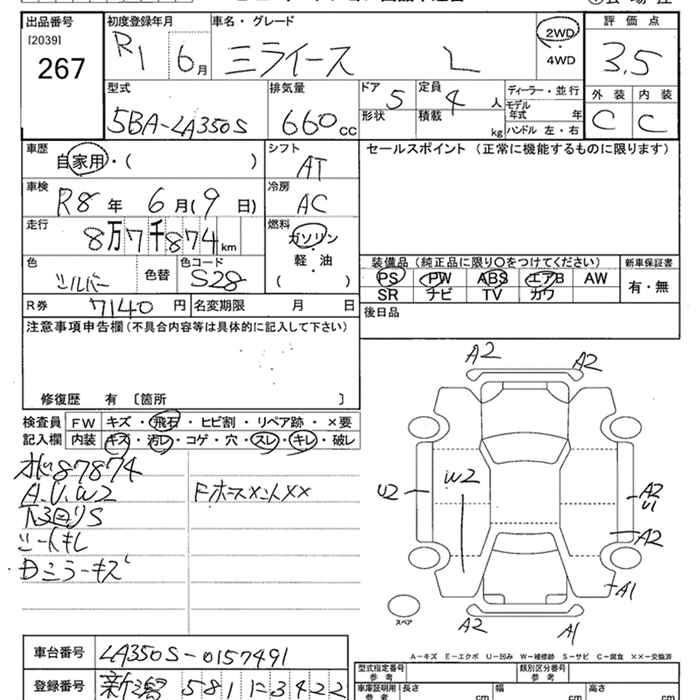 出品番号 初度登録年月 車名・グレード 2WD 評価点
[2039] R1 6月 ミライース L ・ 3.5
267 4WD
型式 排気量 ドア 5 定員 4 人 ディーラー・並行 外装 内装
5BA-LA350S 660cc 形状 積載 kg モデル年式 年 C C
ハンドル 左・右
車歴 自家用・( ) シフト AT セールスポイント (正常に機能するものに限ります)
車検 R8年 6月(9日) 冷房 AC
走行 8万7千874km 燃料 ガソリン
軽・油
( )
色 シルバー 色替 色コード S28 装備品(純正品に限り○をつけてください) 新車保証書
PS PW ABS エアB AW 有・無
SR ナビ TV カワ
R券 7140円 名変期限 月 日 後日品
注意事項申告欄(不具合内容等は具体的に記入して下さい)
修復歴 有 〔箇所 〕
検査員 FW キズ・飛石・ヒビ割・リペア跡・×要
記入欄 内装 キズ・汚レ・コゲ・穴・スレ・キレ・破レ
87874
A.U.W2 Fホースメント××
下回りS
シートキレ
ミラーキズ
A2 A2
U2 W2 A2
U1
A2
A1
スペア A2 A1
A-キズ E-エクボ U-凹み W-補修跡 S-サビ C-腐食 ××-交換済
車台番号 LA350S-0157491
型式指定番号 参考 類別区分番号 参考
登録番号 新潟 581 に3422
車庫証明用 参考 長さ cm 幅 cm 高さ cm